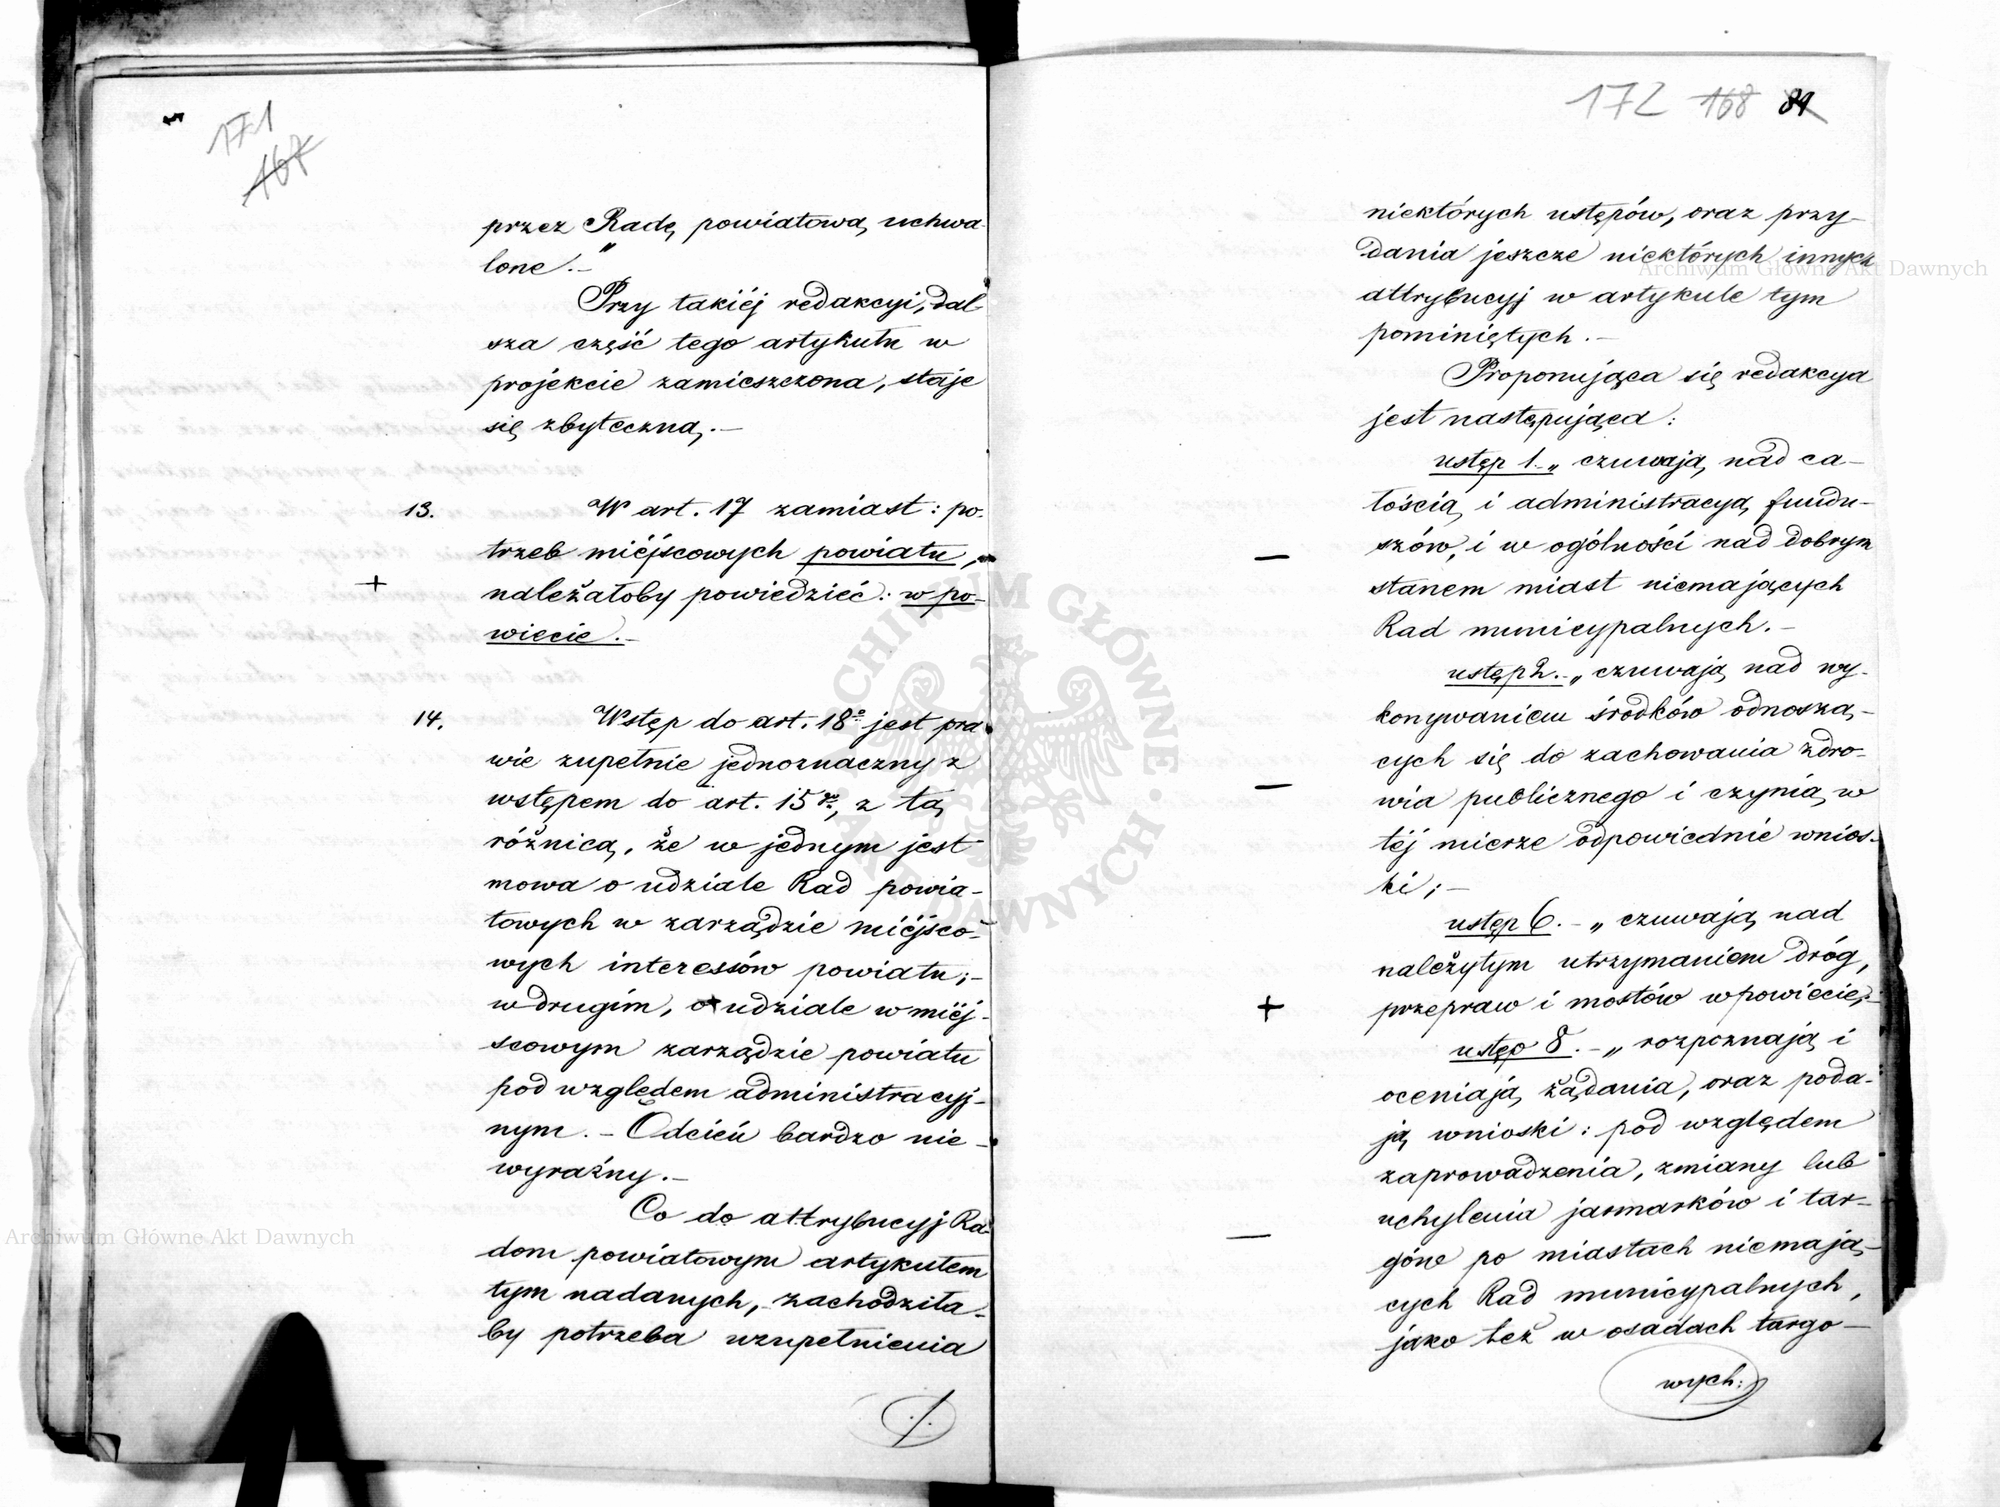 171
167
przez Radę powiatową uchwa-
lone."–
Przy takiéj redakcyi, dal
sza część tego artykułu w
projekcie zamieszczona, staje
się zbyteczną.–
13. W art. 17 zamiast: po-
trzeb miéjscowych powiatu,
+ należałoby powiedzieć: w po-
wiecie.–
14. Wstęp do art. 18º jest pra
wie zupełnie jednoznaczny z
wstępem do art. 15go, z tą
różnicą, że w jednym jest
mowa o udziale Rad powia-
towych w zarządzie miéjsco-
wych interessów powiatu;–
w drugim, o udziale w miéj-
scowym zarządzie powiatu
pod względem administracyj-
nym.– Odcień bardzo nie-
wyraźny.–
Co do attrybucyj Ra-
dom powiatowym artykułem
tym nadanych, zachodziła-
by potrzeba uzupełnienia
./.
172 168 89
niektórych ustępów, oraz przy-
dania jeszcze niektórych innych
attrybucyj w artykule tym
pominiętych.–
Proponująca się redakcya
jest następująca:
ustęp 1.– „czuwają nad ca-
łością i administracyą fundu-
– szów, i w ogólności nad dobrym
stanem miast niemających
Rad municypalnych.–
ustęp 2.– „czuwają nad wy-
konywaniem środków odnoszą-
cych się do zachowania zdro-
– wia publicznego i czynią w
téj mierze odpowiednie wnios-
ki;–
ustęp 6.– „czuwają nad
należytym utrzymaniem dróg,
+ przepraw i mostów w powiecie;–
ustęp 8.– „rozpoznają i
oceniają żądania, oraz poda-
ją wnioski: pod względem
zaprowadzenia, zmiany lub
uchylenia jarmarków i tar-
– gów po miastach niemają-
cych Rad municypalnych,
jako też w osadach targo-
wych:
Archiwum Główne Akt Dawnych
Archiwum Główne Akt Dawnych
ARCHIWUM GŁÓWNE AKT DAWNYCH